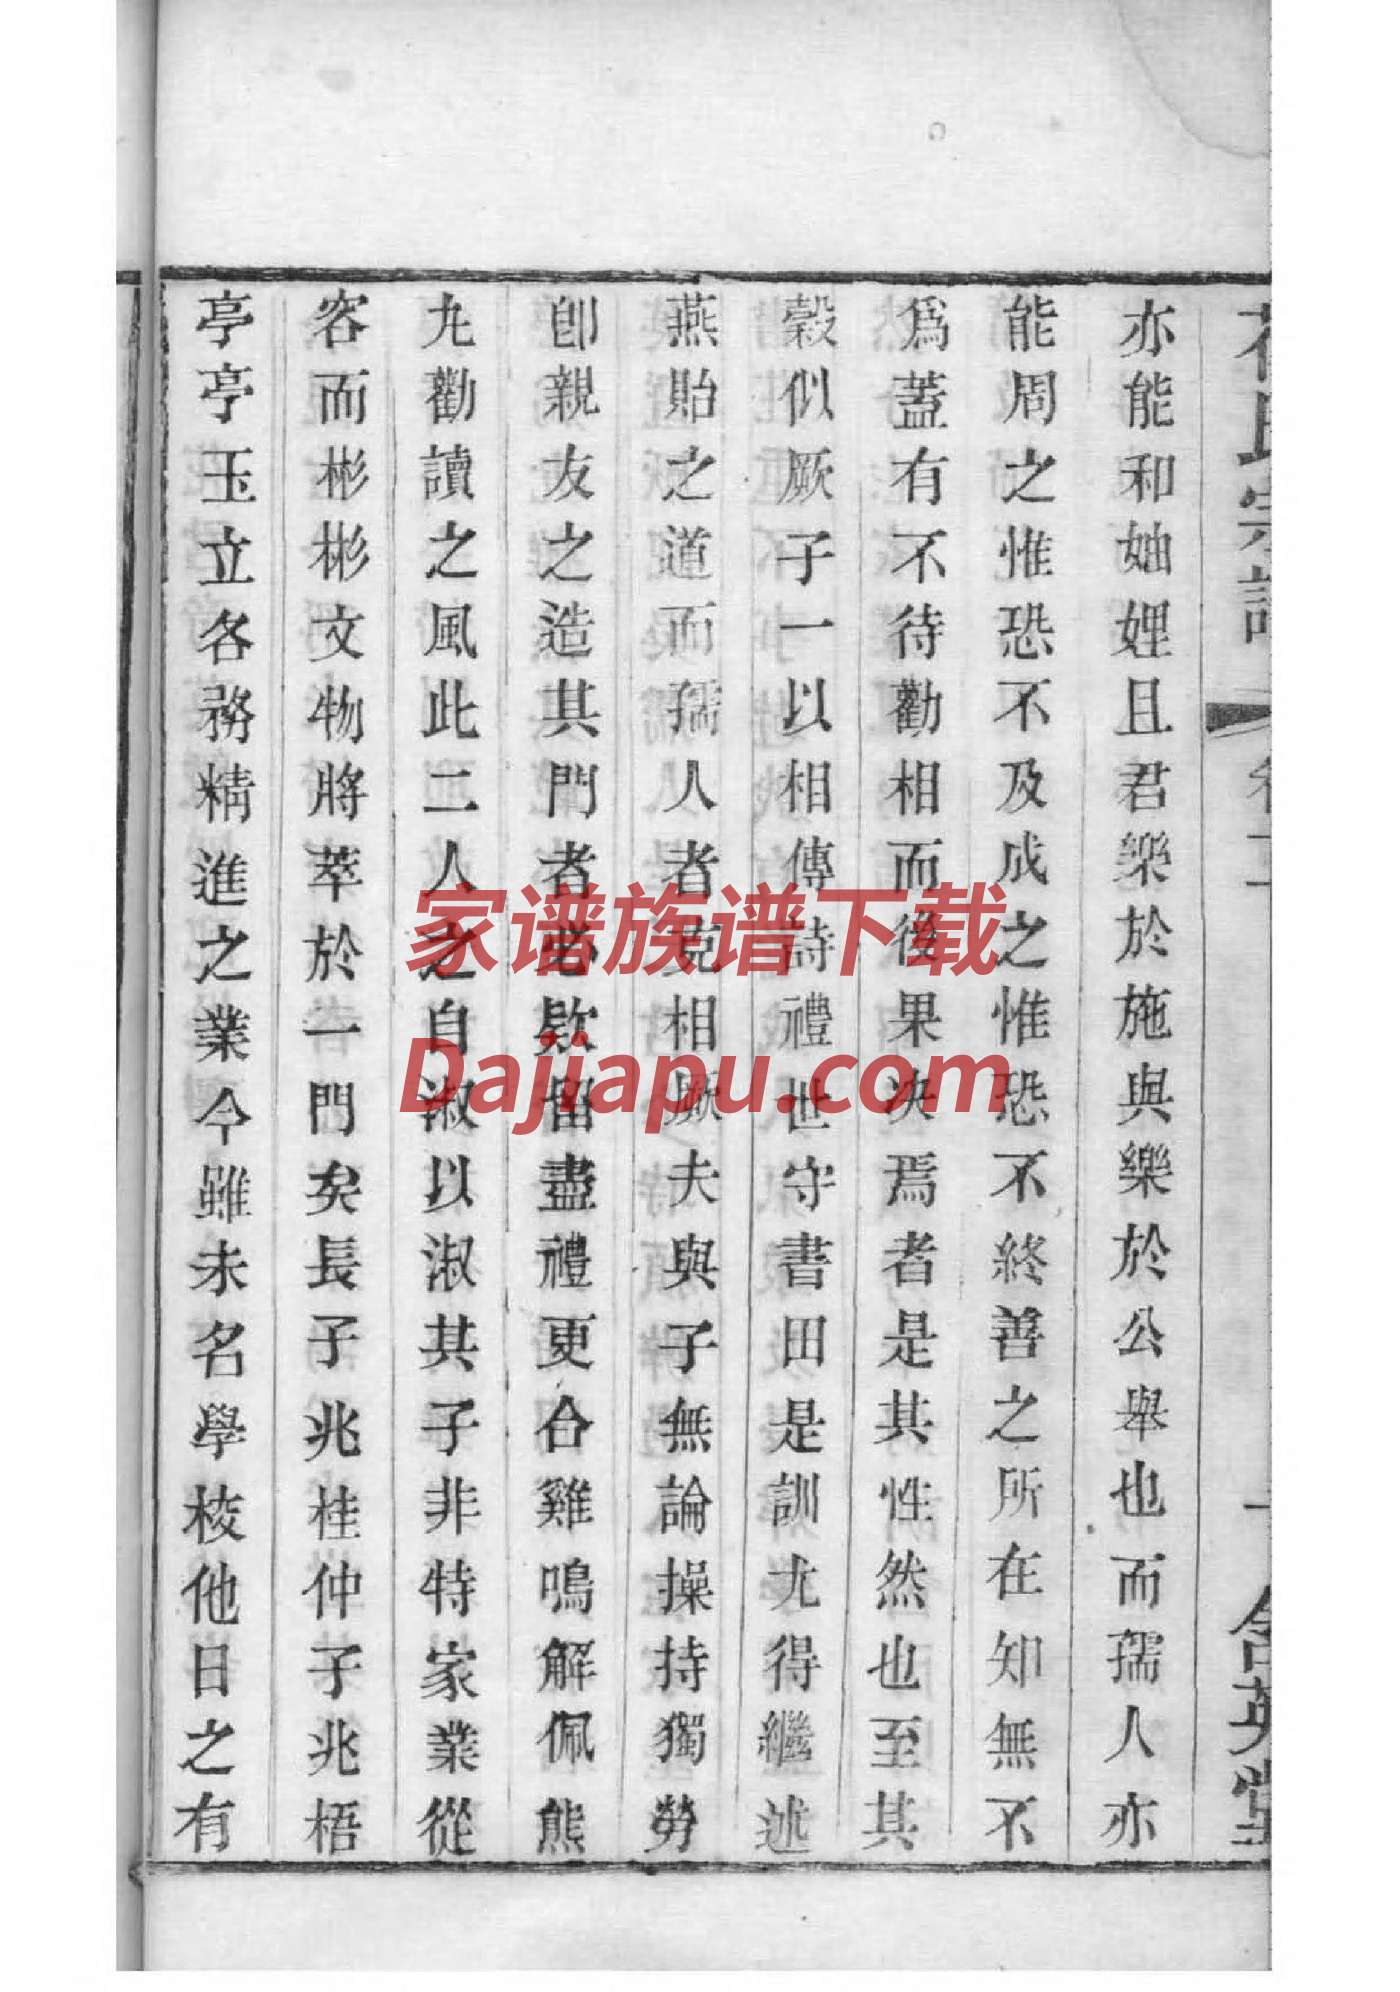 氏宗譜
亦能和妯娌且君樂於施與樂於公舉也而孺人亦
能周之惟恐不及成之惟恐不終善之所在知無不
爲蓋有不待勸相而後果决焉者是其性然也至其
穀似厥子一以相傳詩禮世守書田是訓尤得繼述
燕貽之道而孺人者克相厥夫與子無論操持獨勞
卽親友之造其門者必欵留盡禮更合雞鳴解佩熊
九勸讀之風此二人之自淑以淑其子非特家業從
容而彬彬文物將萃於一門矣長子兆桂仲子兆梧
亭亭玉立各務精進之業今雖未名學校他日之有
家谱族谱下载
Dajiapu.com